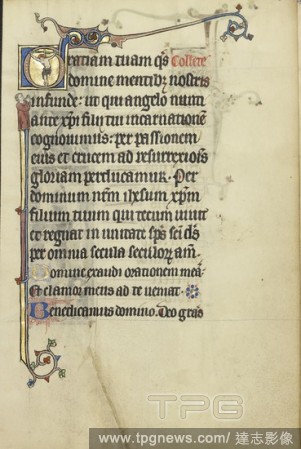 Gratiam tuam qs Collecte
domine mentibꝫ nostris
infunde: ut qui angelo nunti
ante xp̄i filii tui incarnationē
cognouimus: per passionem
eius et crucem ad resurrexiois
gloriam perducamur. Per
dominum nēm ih̄sum xp̄m
filium tuum qui tecum uiuit
et regnat in unitate sp̄s sc̄i ds̄
per omnia secula seculoꝝ am̄.
Domine exaudi orationem meā.
Et clamor meus ad te ueniat.
Benedicamus domino. Deo gr̄as
TPG
www.tpgnews.com/ 達志影像